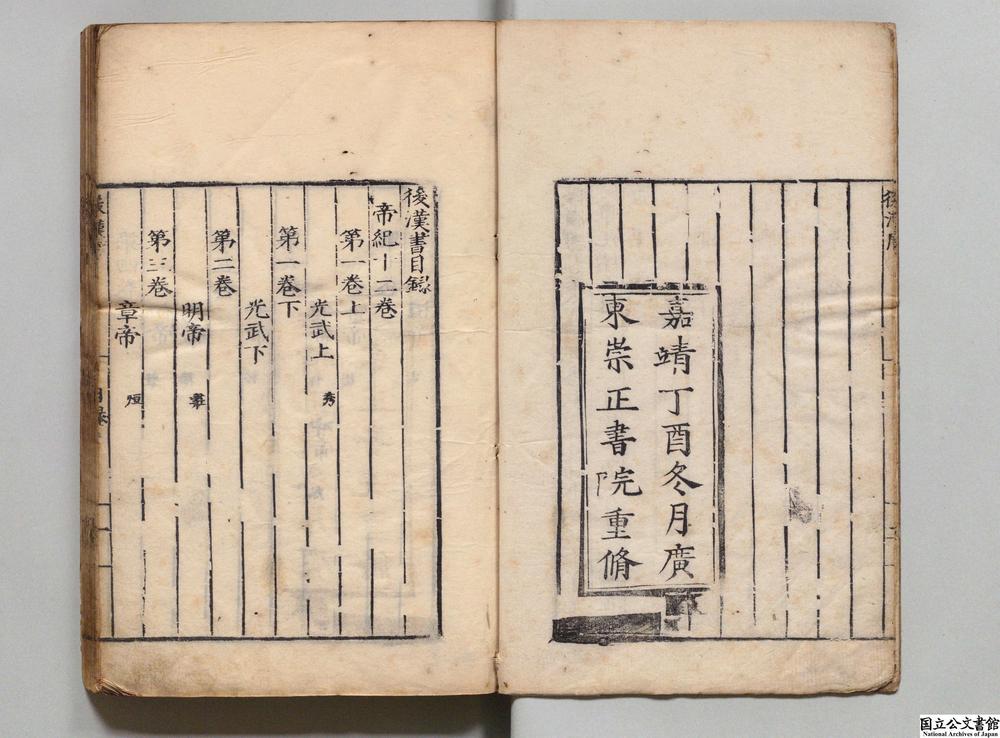 嘉靖丁酉冬月廣
東崇正書院重脩
後漢書目錄
帝紀十二卷
第一卷上
光武上 秀
第一卷下
光武下
第二卷
明帝
第三卷
章帝 烜
国立公文書館
National Archives of Japan